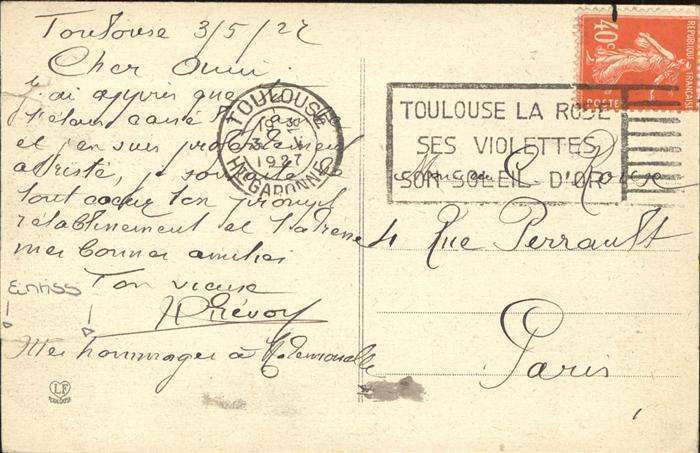 Toulouse 3/5/27
Cher Ami
j'ai appris que
t'étais cassé
et j'en suis profondément
attristé, je souhaite de
tout coeur ton prompt
rétablissement et t'adresse
mes bonnes amitiés
Ton vieux
Prévost
Mes hommages à Mademoiselle
TOULOUSE
1927
Hte GARONNE
TOULOUSE LA ROSE
SES VIOLETTES
SON SOLEIL D'OR
40c
REPUBLIQUE FRANÇAISE
POSTES
Monsieur
4 Rue Perrault
Paris
LF
TOULOUSE